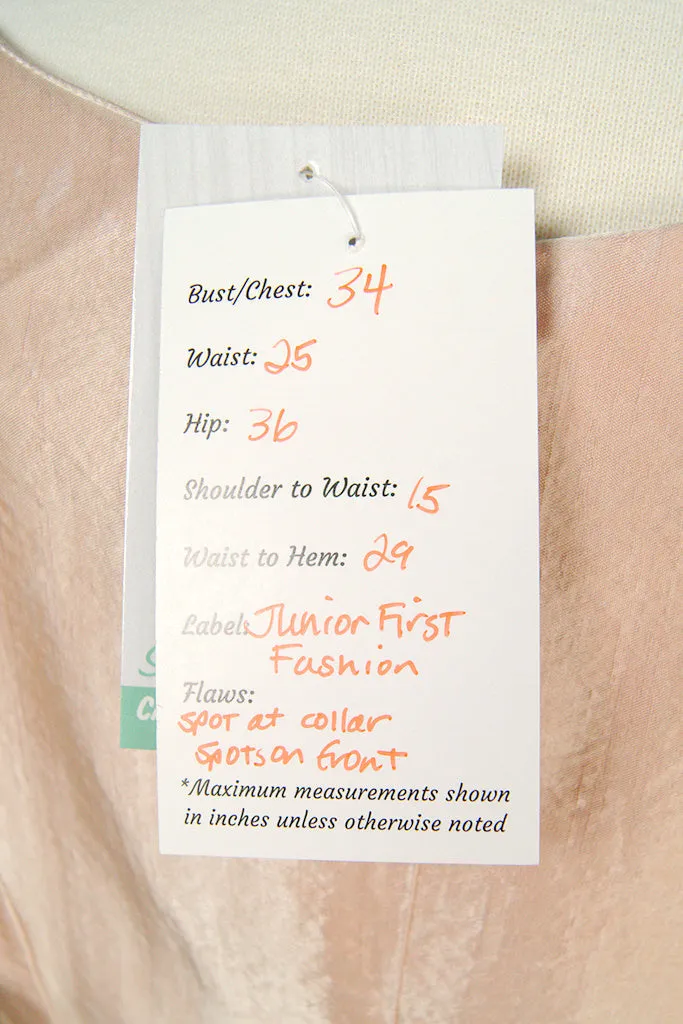 Bust/Chest: 34
Waist: 25
Hip: 36
Shoulder to Waist: 15
Waist to Hem: 29
Label: Junior First
Fashion
Flaws:
spot at collar
spots on front
*Maximum measurements shown
in inches unless otherwise noted